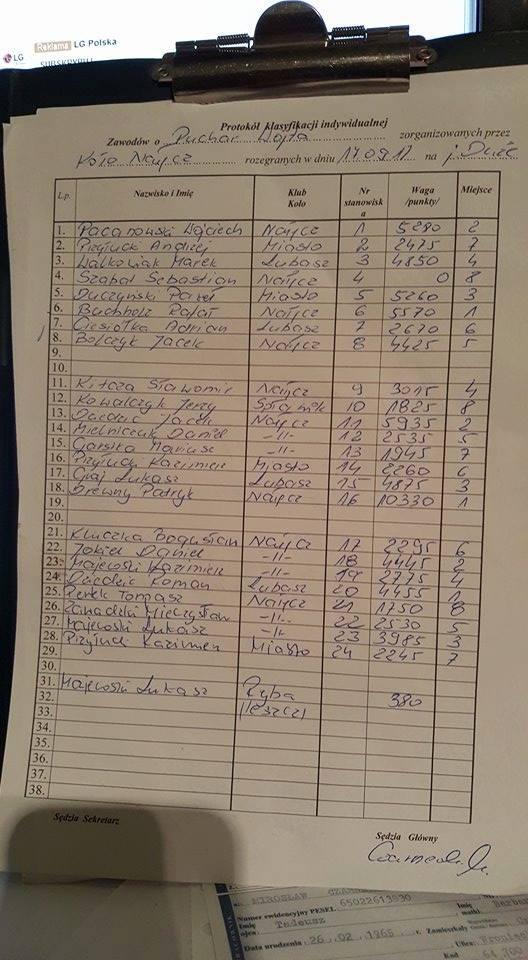 Reklama LG Polska
LG
SUBSKRYBUJ
Protokół klasyfikacji indywidualnej
Zawodów o Puchar Wójta zorganizowanych przez
Koło Najcz rozegranych w dniu 170917 na j. Duże
L.p. Nazwisko i Imię Klub Koło Nr stanowiska Waga /punkty/ Miejsce
1. Pacanowski Wojciech Najcz 1 5280 2
2. Przyłucki Andrzej Miasto 2 2475 7
3. Walkowiak Marek Lubasz 3 4850 4
4. Szabat Sebastian Najcz 4 0 8
5. Duczyński Paweł Miasto 5 5260 3
6. Buchholz Rafał Najcz 6 5570 1
7. Ciesiółka Adrian Lubasz 7 2670 6
8. Bolczyk Jacek Najcz 8 4425 5
9.
10.
11. Kitcza Sławomir Najcz 9 3015 4
12. Kowalczyk Jerzy 10 1825 8
13. Dziedzic Jacek Najcz 11 5935 2
14. Mielniczuk Daniel -//- 12 2535 5
15. Garstka Mariusz -//- 13 1945 7
16. Przyłucki Kazimierz Miasto 14 2260 6
17. Graj Łukasz Lubasz 15 4875 3
18. Drewny Patryk Najcz 16 10330 1
19.
20.
21. Kluczka Bogusław Najcz 17 2295 6
22. Jokiel Daniel -//- 18 4445 2
23. Majewski Kazimierz -//- 19 2775 4
24. Dziedzic Roman Lubasz 20 4455 1
25. Perek Tomasz Najcz 21 1750 8
26. Zawadzki Mieczysław -//- 22 2530 5
27. Majewski Łukasz -//- 23 3985 3
28. Przyłucki Kazimierz Miasto 24 2245 7
29.
30.
31. Majewski Łukasz Ryba
32. 380
33. /leszcz/
34.
35.
36.
37.
38.
Sędzia Sekretarz
Sędzia Główny
MIROSŁAW
Numer ewidencyjny PESEL
Imię ojca: Tadeusz
Imię matki:
Data urodzenia: 26.02.1965 r. Zamieszkały
Ulica:
Kod 64 700